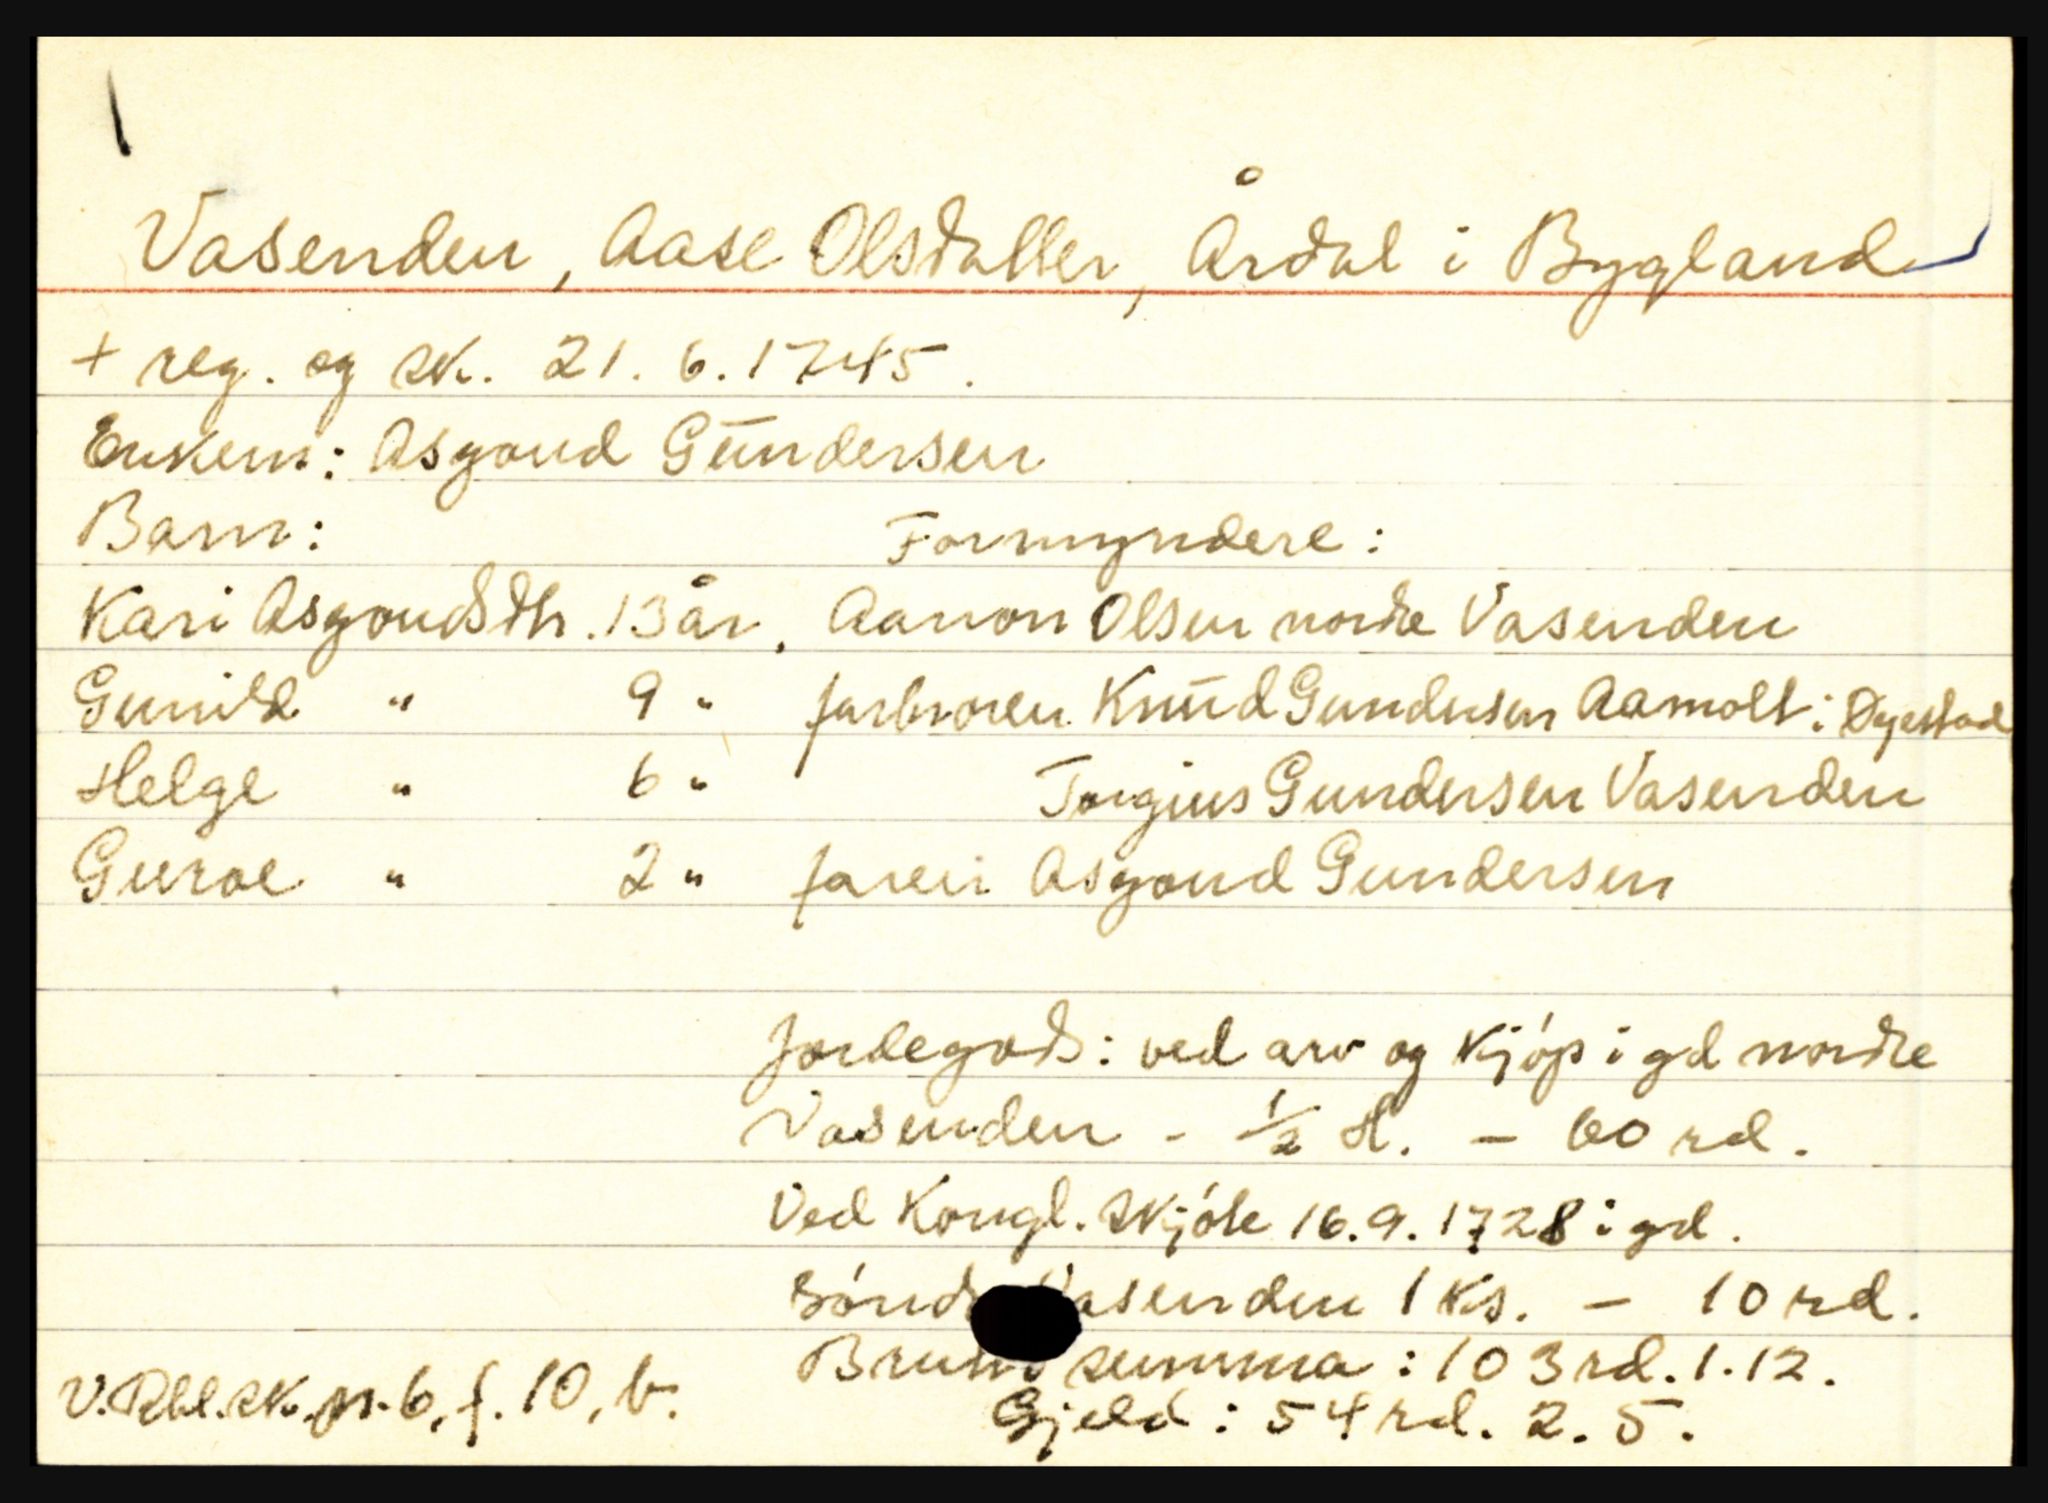 Vasenden, Aase Olsdatter, Årdal i Bygland
+ reg. og sk. 21. 6. 1745.
Enkem: Asgoud Gundersen
Barn: Formyndere:
Kari Asgoudsdtr. 13 år, Aanon Olsen nordre Vasenden
Gunild " 9 " farbroren Knud Gundersen Aamolt i
Helge " 6 " Torgius Gundersen Vasenden
Guroe " 2 " faren Asgoud Gundersen
Jordegods: ved arv og kjóp i gd nordre
Vasenden - 1/2 H. - 60 rd.
Ved Kongl. skjóte 16.9.1728 i gd.
Vasenden 1 Ks. - 10 rd.
Brutto summa: 103 rd. 1. 12.
V. Rbl. sk. nr. 6, f. 10, b. Gjeld: 54 rd. 2. 5.